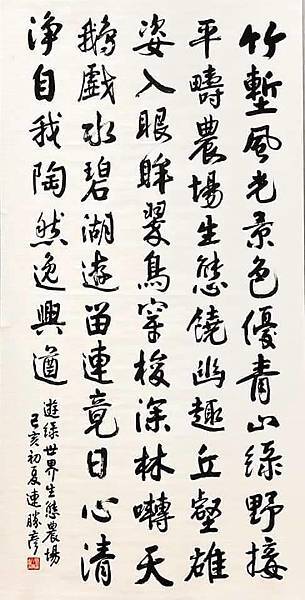 竹塹風光景色優青山綠野接
平疇農場生態饒幽趣丘壑雄
姿入眼眸翠鳥穿梭深林囀天
鵝戲水碧湖遊留連竟日心清
淨自我陶然逸興遒
遊綠世界生態農場
己亥初夏連勝彥